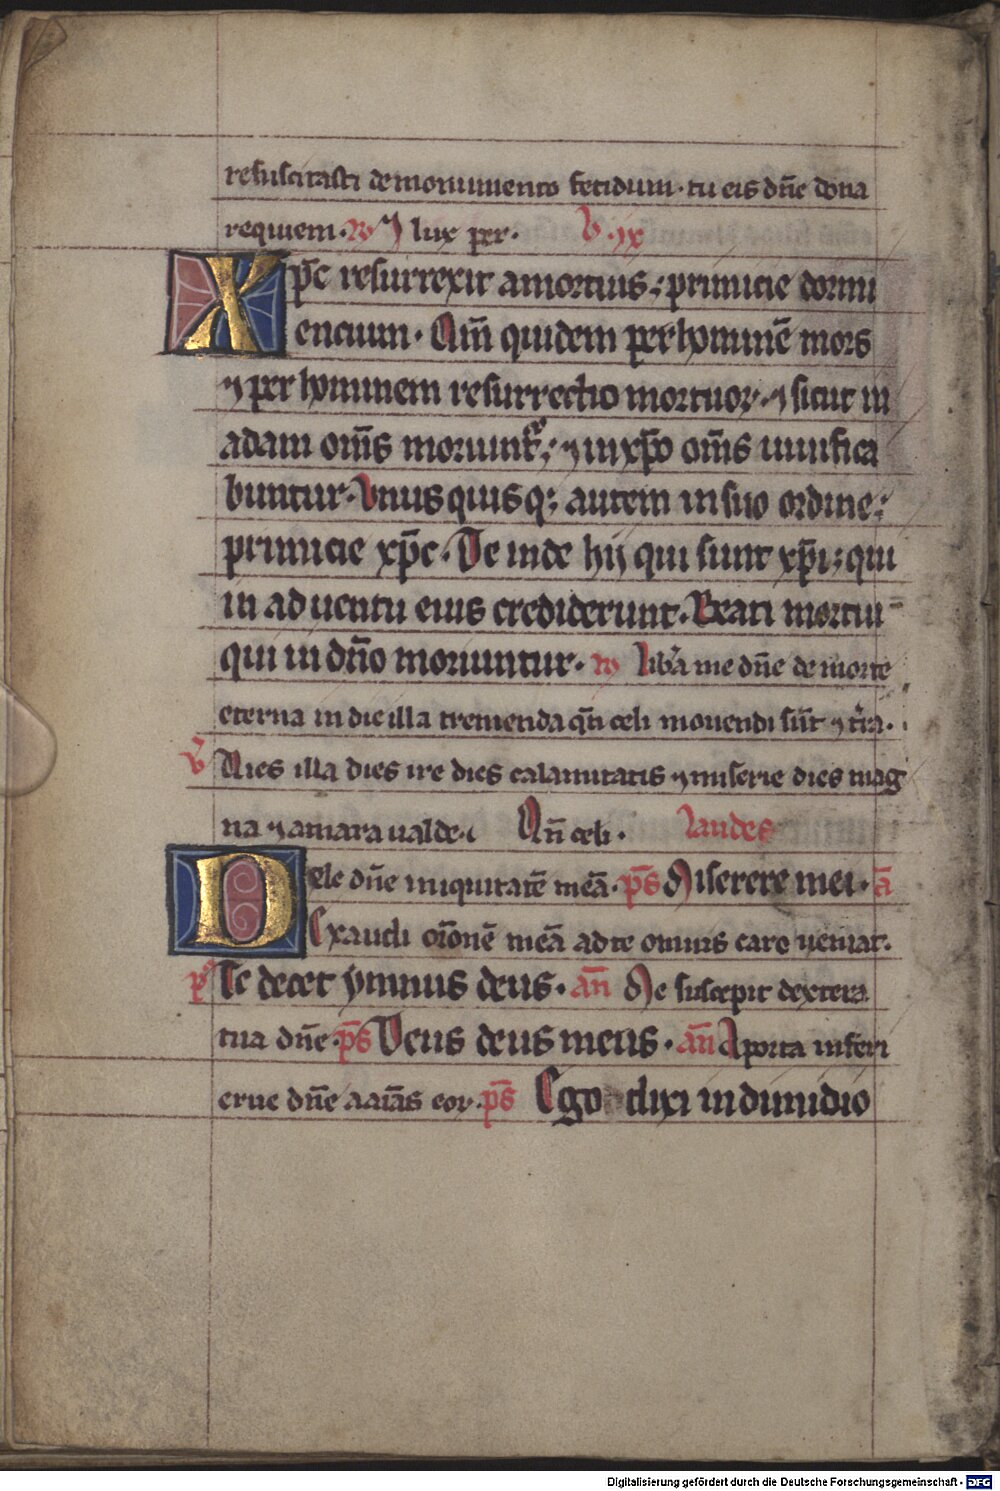 resuscitasti de monumento fetidum · tu eis dn̄e dona
requiem · lux per · ix
Xp̄c resurrexit a mortuis : primicie dormi
encium · Qm̄ quidem per hominē mors
⁊ per hominem resurrectio mortuor ⁊ sicut in
adam om̄s moriunt ; ⁊ in xp̄o om̄s uiuifica
buntur · Vnus quis q; autem in suo ordine :
primicie xp̄c · De inde hij qui sunt xp̄i ; qui
in ad uentu eius crediderunt · Beati mortui
qui in dn̄o moriuntur · libera me dn̄e de morte
eterna in die illa tremenda qn̄ celi mouendi sūt ⁊ t̄ra ·
Dies illa dies ire dies calamitatis ⁊ miserie dies mag
na ⁊ amara ualde · Qn̄ celi · laudes
Dele dn̄e iniquitatē meā · ps̄ Miserere mei · ā
Exaudi or̄onē meā ad te omnis caro ueniat ·
ps̄ Te decet ymnus deus · an̄ Me suscepit dextera
tua dn̄e · ps̄ Deus deus meus · an̄ A porta inferi
erue dn̄e aāīās eor · ps̄ Ego dixi in dimidio
Digitalisierung gefördert durch die Deutsche Forschungsgemeinschaft · DFG